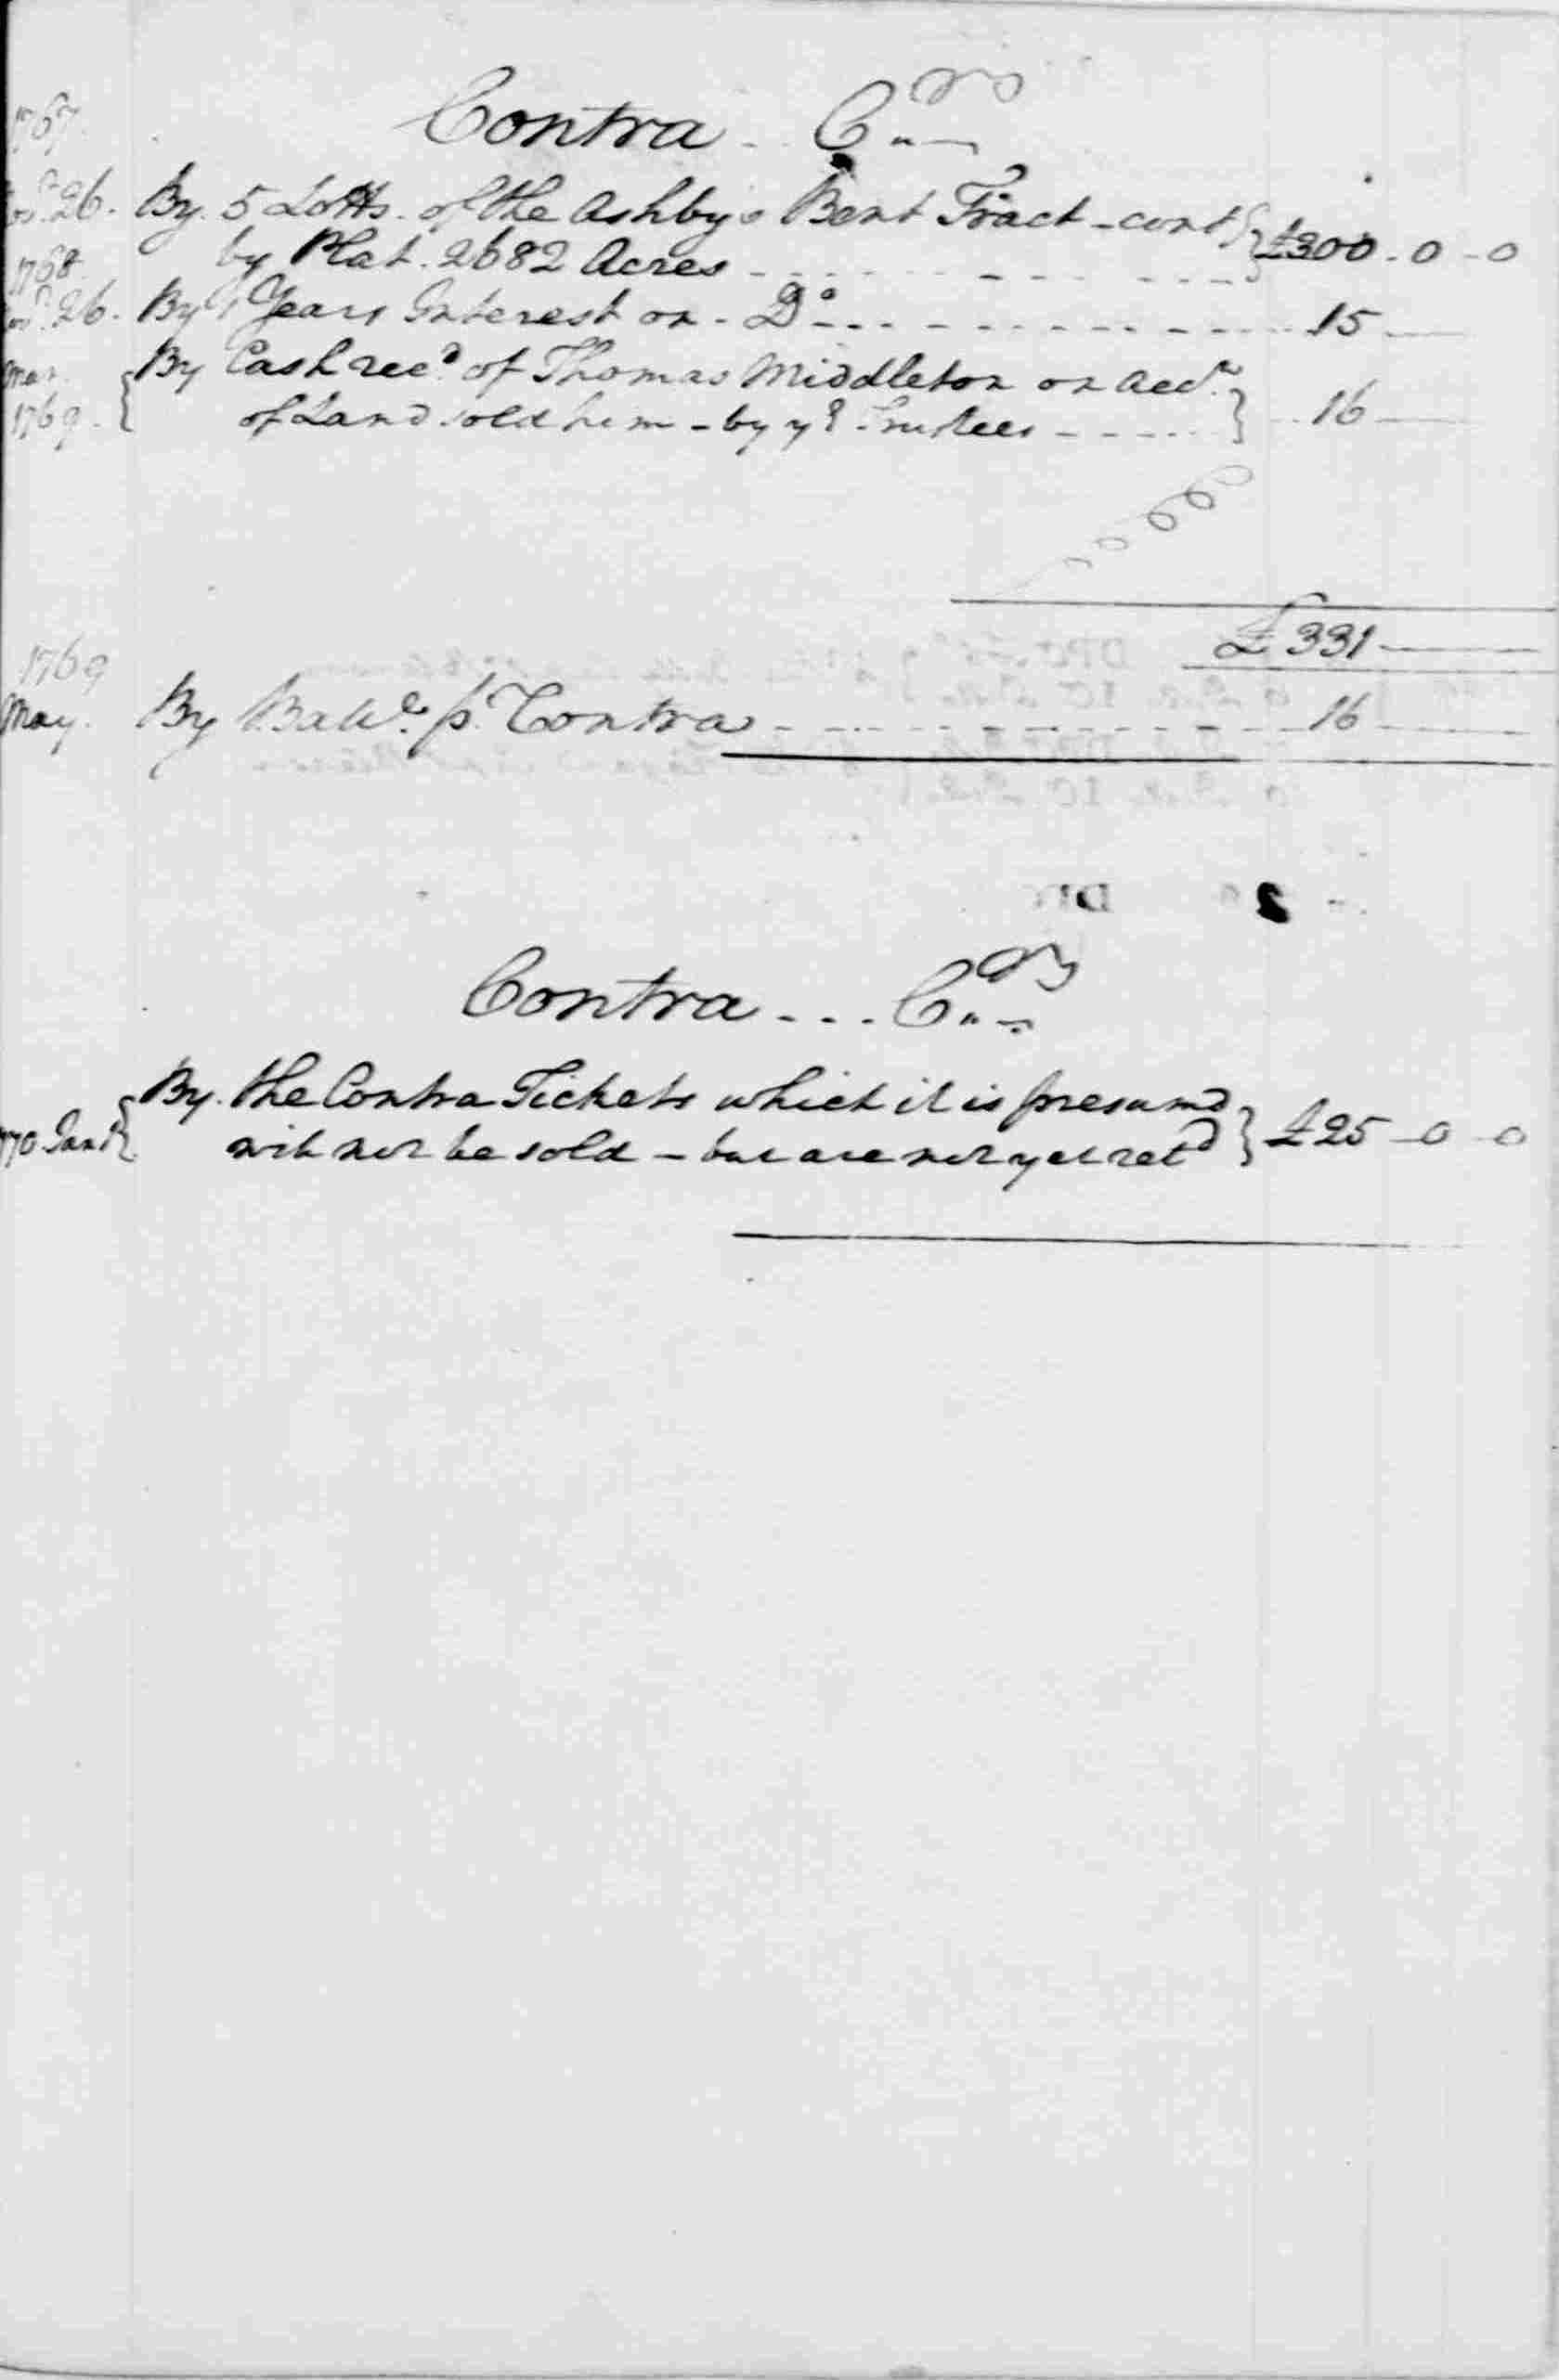 1767
Contra .. Crs
26. By. 5 Lotts. of the Ashby's Bent Tract - cont
by Plat. 2682 Acres - - - £300 . 0 - 0
1768
26. By 1 Years Interest on - Do - - - 15 —
Mar. By Cash recd. of Thomas Middleton on Acct.
1769. of Land sold him - by ye. Trustees - - - - - 16 —
£331 —
1769
May. By Balle. pr. Contra - - - 16 —
Contra - - . Crs
By. the Contra Tickets which it is presumd
70 will not be sold - but are not yet retd £25 - 0 - 0